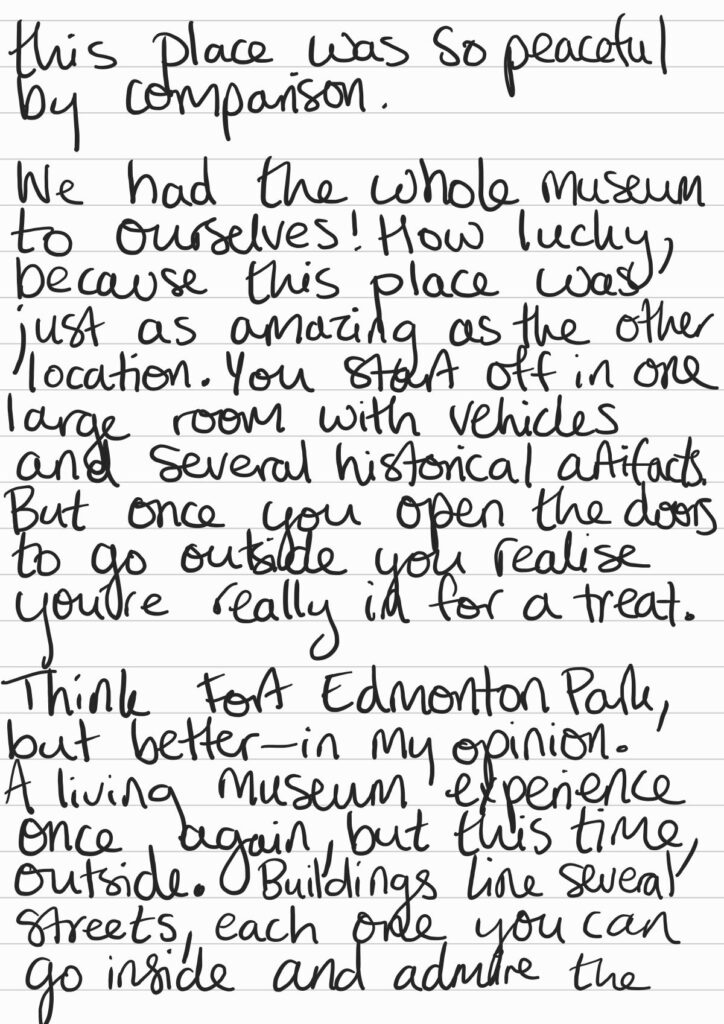 this place was so peaceful
by comparison.
We had the whole museum
to ourselves! How lucky,
because this place was
just as amazing as the other
location. You start off in one
large room with vehicles
and several historical artifacts.
But once you open the doors
to go outside you realise
you're really in for a treat.
Think Fort Edmonton Park,
but better—in my opinion.
A living museum experience
once again, but this time,
outside. Buildings line several
streets, each one you can
go inside and admire the